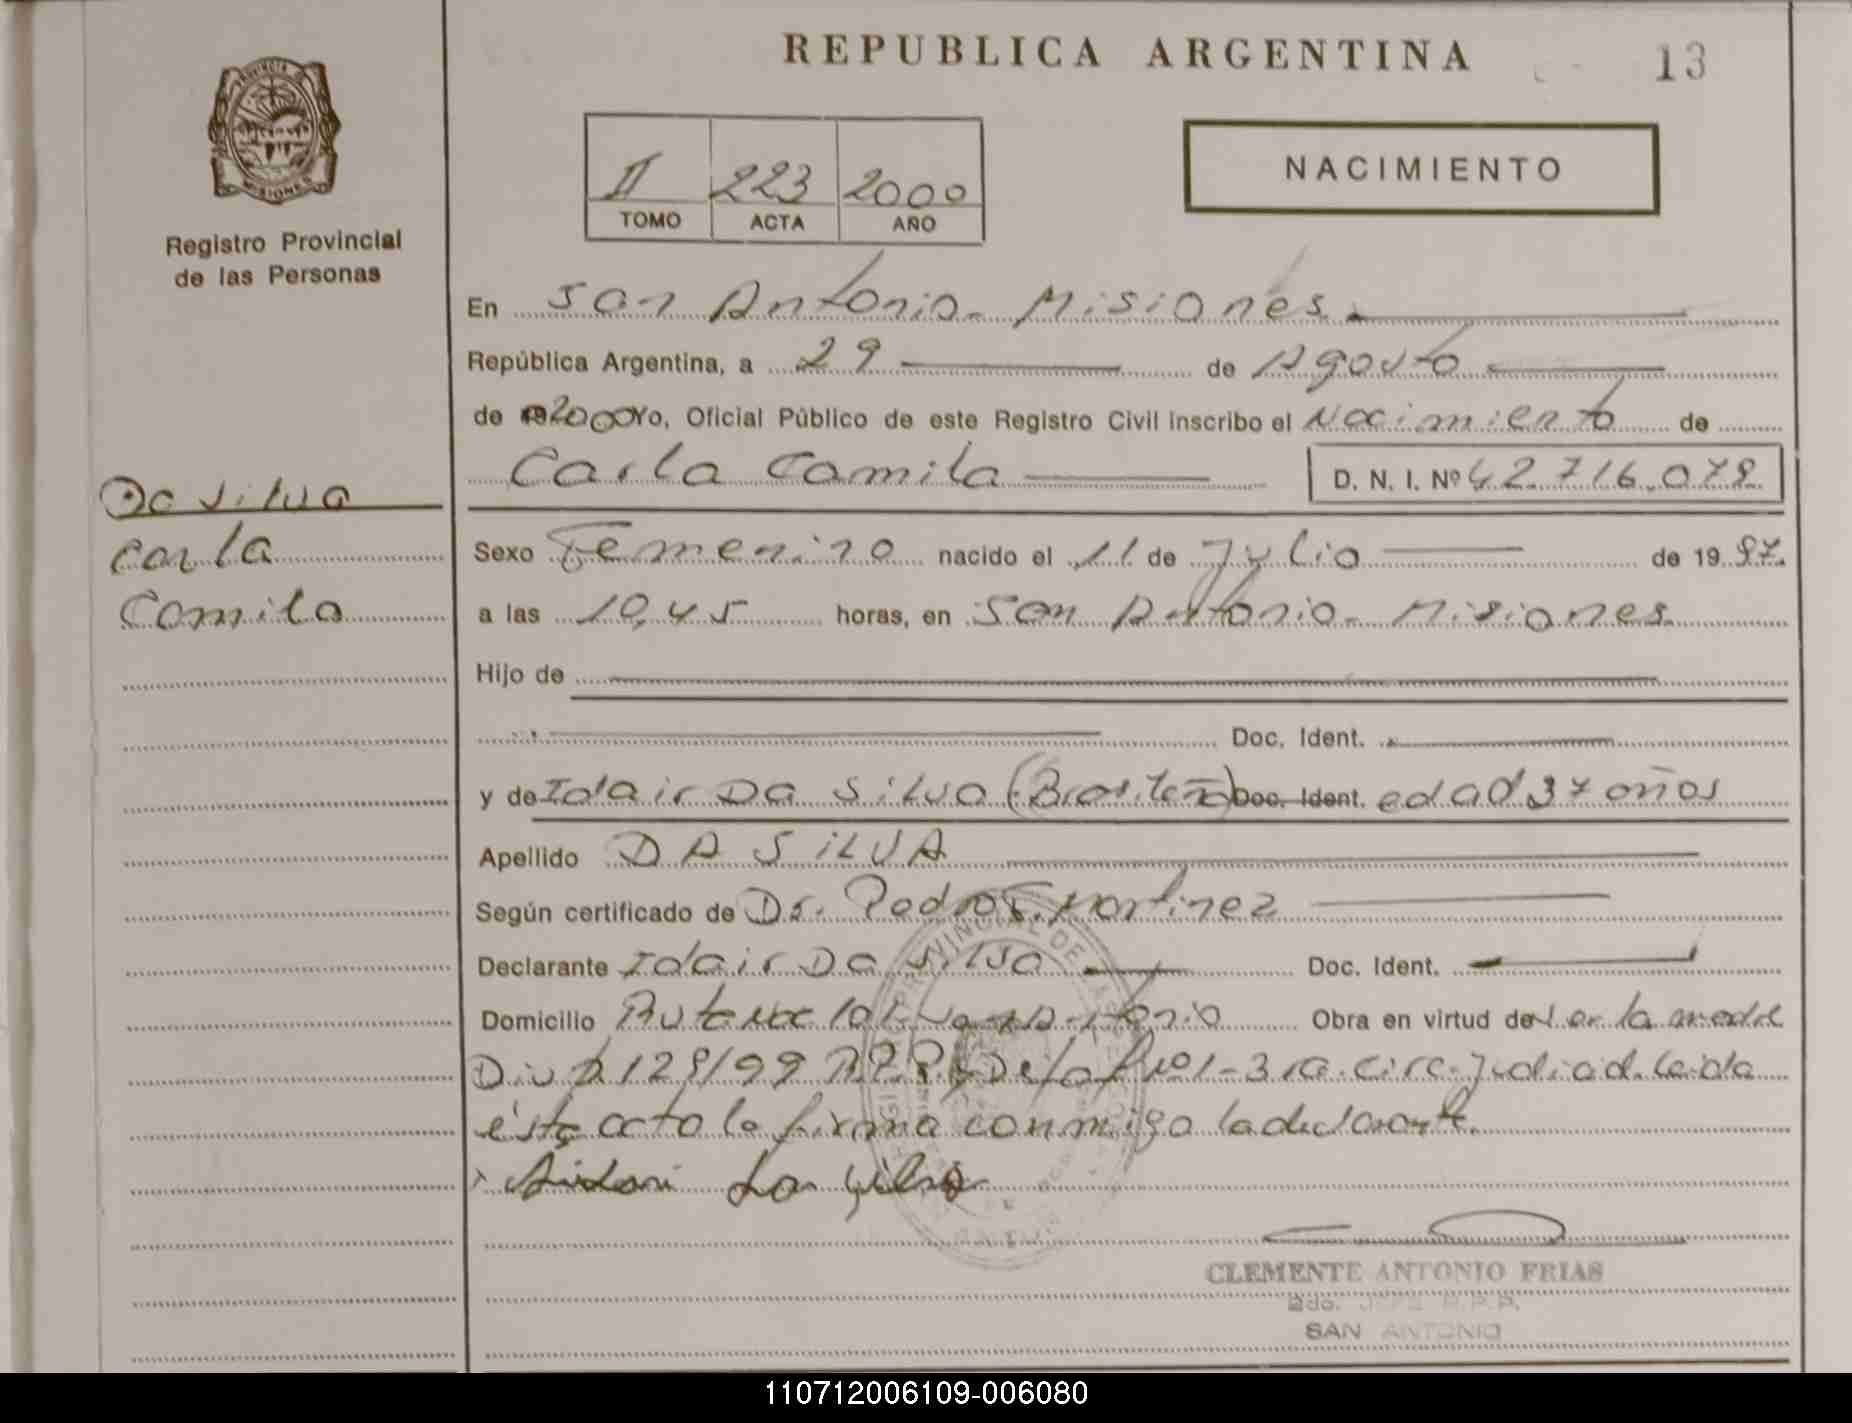 REPUBLICA ARGENTINA
13
PROVINCIA DE
MISIONES
Registro Provincial
de las Personas
II 223 2000
TOMO ACTA AÑO
NACIMIENTO
En San Antonio - Misiones
República Argentina, a 29 de Agosto
de 2000 Yo, Oficial Público de este Registro Civil inscribo el Nacimiento de
Carla Camila D. N. I. Nº 42.716.078
Da Silva
Carla
Camila
Sexo Femenino nacido el 11 de Julio de 19 97.
a las 10,45 horas, en San Antonio - Misiones
Hijo de
Doc. Ident.
y de Idair Da Silva (Brasileña) Doc. Ident. edad 37 años
Apellido DA SILVA
Según certificado de Dr. Pedro Martinez
Declarante Idair Da Silva Doc. Ident.
Domicilio Ruta Nac 101 San Antonio Obra en virtud de ser la madre
128/99 3ra. Circ. Judicial. Leida
ésta acta la firma conmigo la declarante.
CLEMENTE ANTONIO FRIAS
2do. JEFE R.P.P.
SAN ANTONIO
110712006109-006080